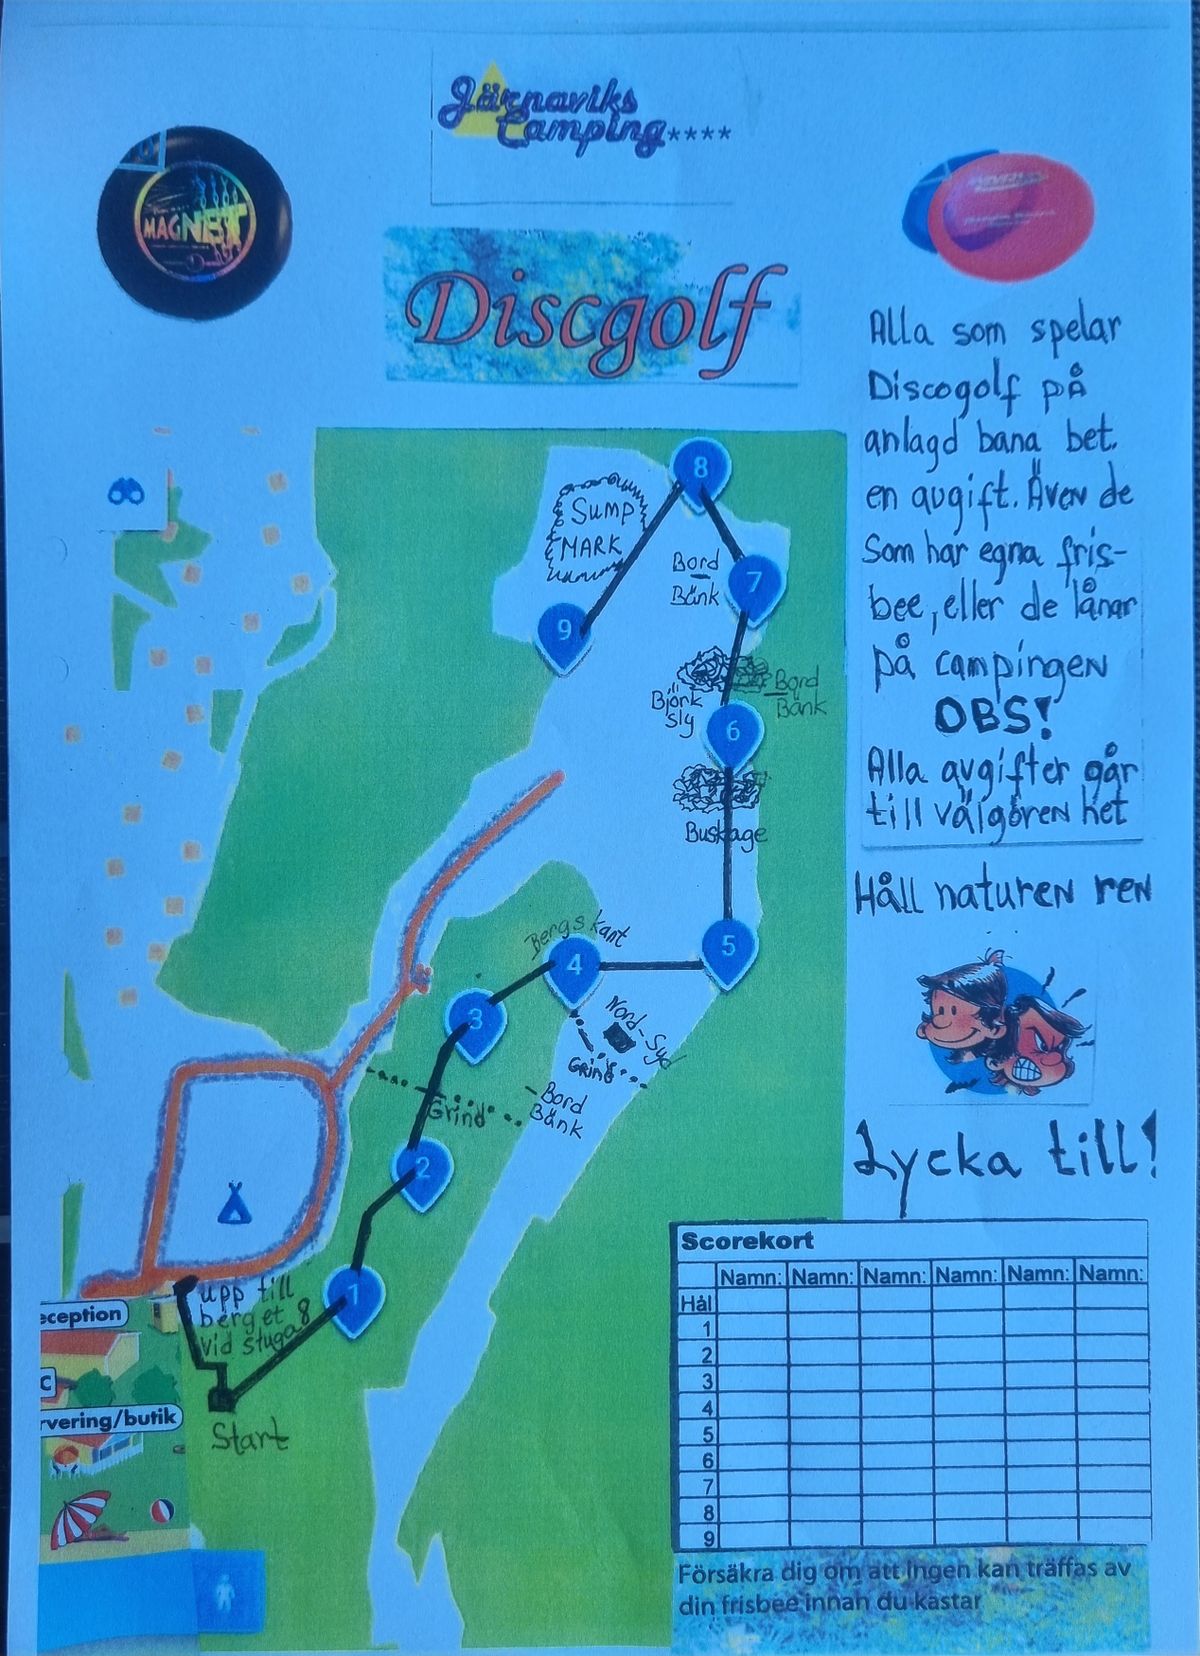 Järnaviks
Camping****
MAGNET
Discgolf
Alla som spelar
Discogolf på
anlagd bana bet.
en avgift. Även de
som har egna fris-
bee, eller de lånar
på campingen
OBS!
Alla avgifter går
till välgören het
Håll naturen ren
Lycka till!
8
SUMP
MARK
Bord
Bänk
7
9
Björk
sly
Bord
Bänk
6
Buskage
Bergskant
4
5
3
Nord-Syd
Grind
Grind
Bord
Bänk
2
1
upp till
berget
vid stuga 8
Start
eception
C
rvering/butik
Scorekort
Namn: Namn: Namn: Namn: Namn: Namn:
Hål
1
2
3
4
5
6
7
8
9
Försäkra dig om att ingen kan träffas av
din frisbee innan du kastar